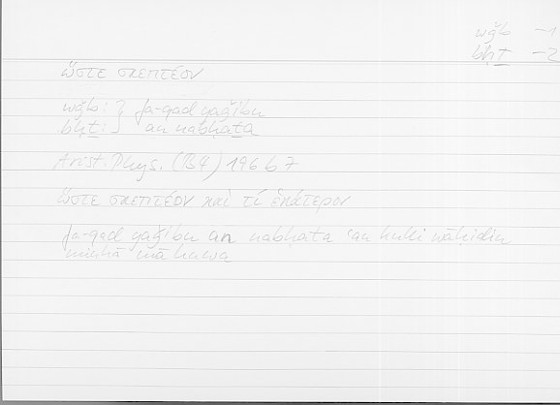 wǧb –1
bḥṯ –2
ὥστε σκεπτέον
wǧb: } fa-qad yaǧibu
bḥṯ: } an nabḥaṯa
Arist. Phys. (B4) 196 b 7
ὥστε σκεπτέον καὶ τί ἑκάτερον
fa-qad yaǧibu an nabḥaṯa ʿan kulli wāḥidin
minhā mā huwa